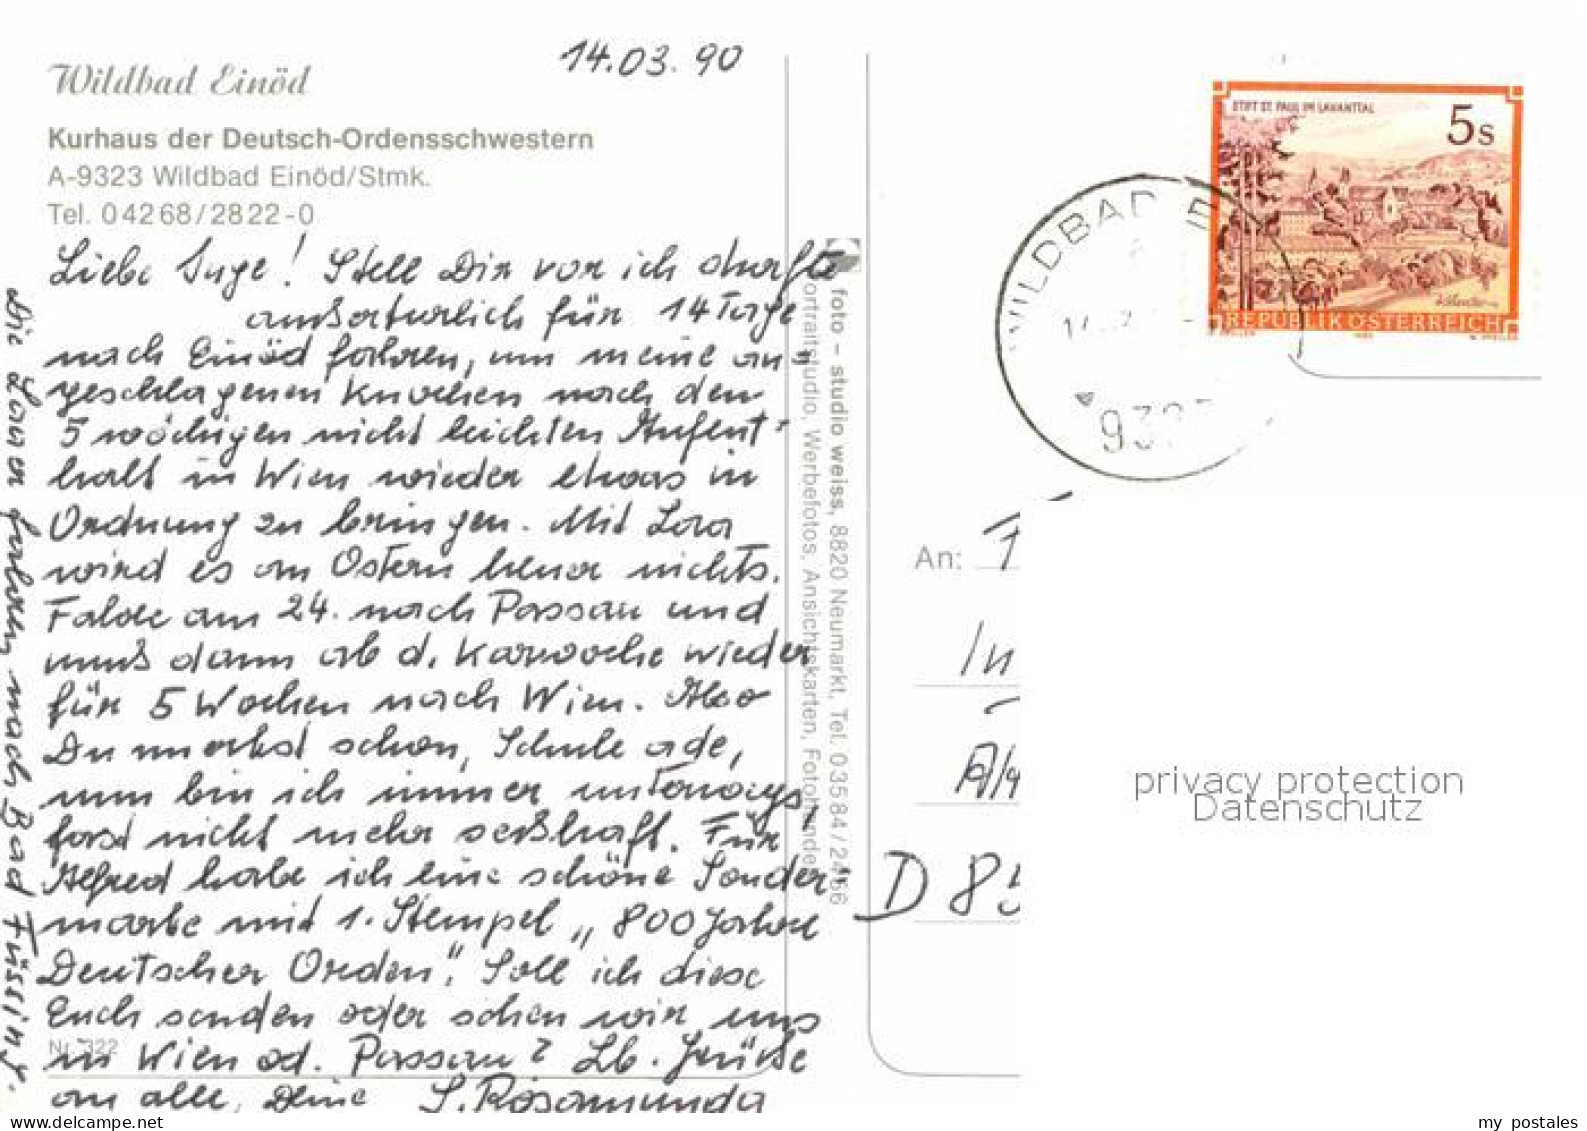 14.03.90
Wildbad Einöd
Kurhaus der Deutsch-Ordensschwestern
A-9323 Wildbad Einöd/Stmk.
Tel. 04268/2822-0
Liebe Inge! Stell Dir vor ich durfte
außerturlich für 14 Tage
nach Einöd fahren, um meine an-
geschlagenen Knochen nach dem
5 wöchigen nicht leichten Aufent-
halt in Wien wieder etwas in
Ordnung zu bringen. Mit Lora
wird es an Ostern heuer nichts.
Fahre am 24. nach Passau und
muß dann ab d. Karwoche wieder
für 5 Wochen nach Wien. Also
Du merkst schon, Schule ade,
nun bin ich immer unterwegs,
fast nicht mehr seßhaft. Für
Alfred habe ich eine schöne Sonder
marke mit 1. Stempel „800 Jahre
Deutscher Orden". Soll ich diese
Euch senden oder sehen wir uns
in Wien od. Passau? Lb. Grüße
an alle, Deine S. Rosamunda
Nr. 322
fahren nach Bad Füssing.
foto – studio weiss, 8820 Neumarkt, Tel. 03584/2466
Portraitstudio, Werbefotos, Ansichtskarten, Fotohandel
STIFT ST. PAUL IM LAVANTTAL
5s
REPUBLIK ÖSTERREICH
WILDBAD
An:
In
D 85
privacy protection
Datenschutz
www.delcampe.net
my_postales